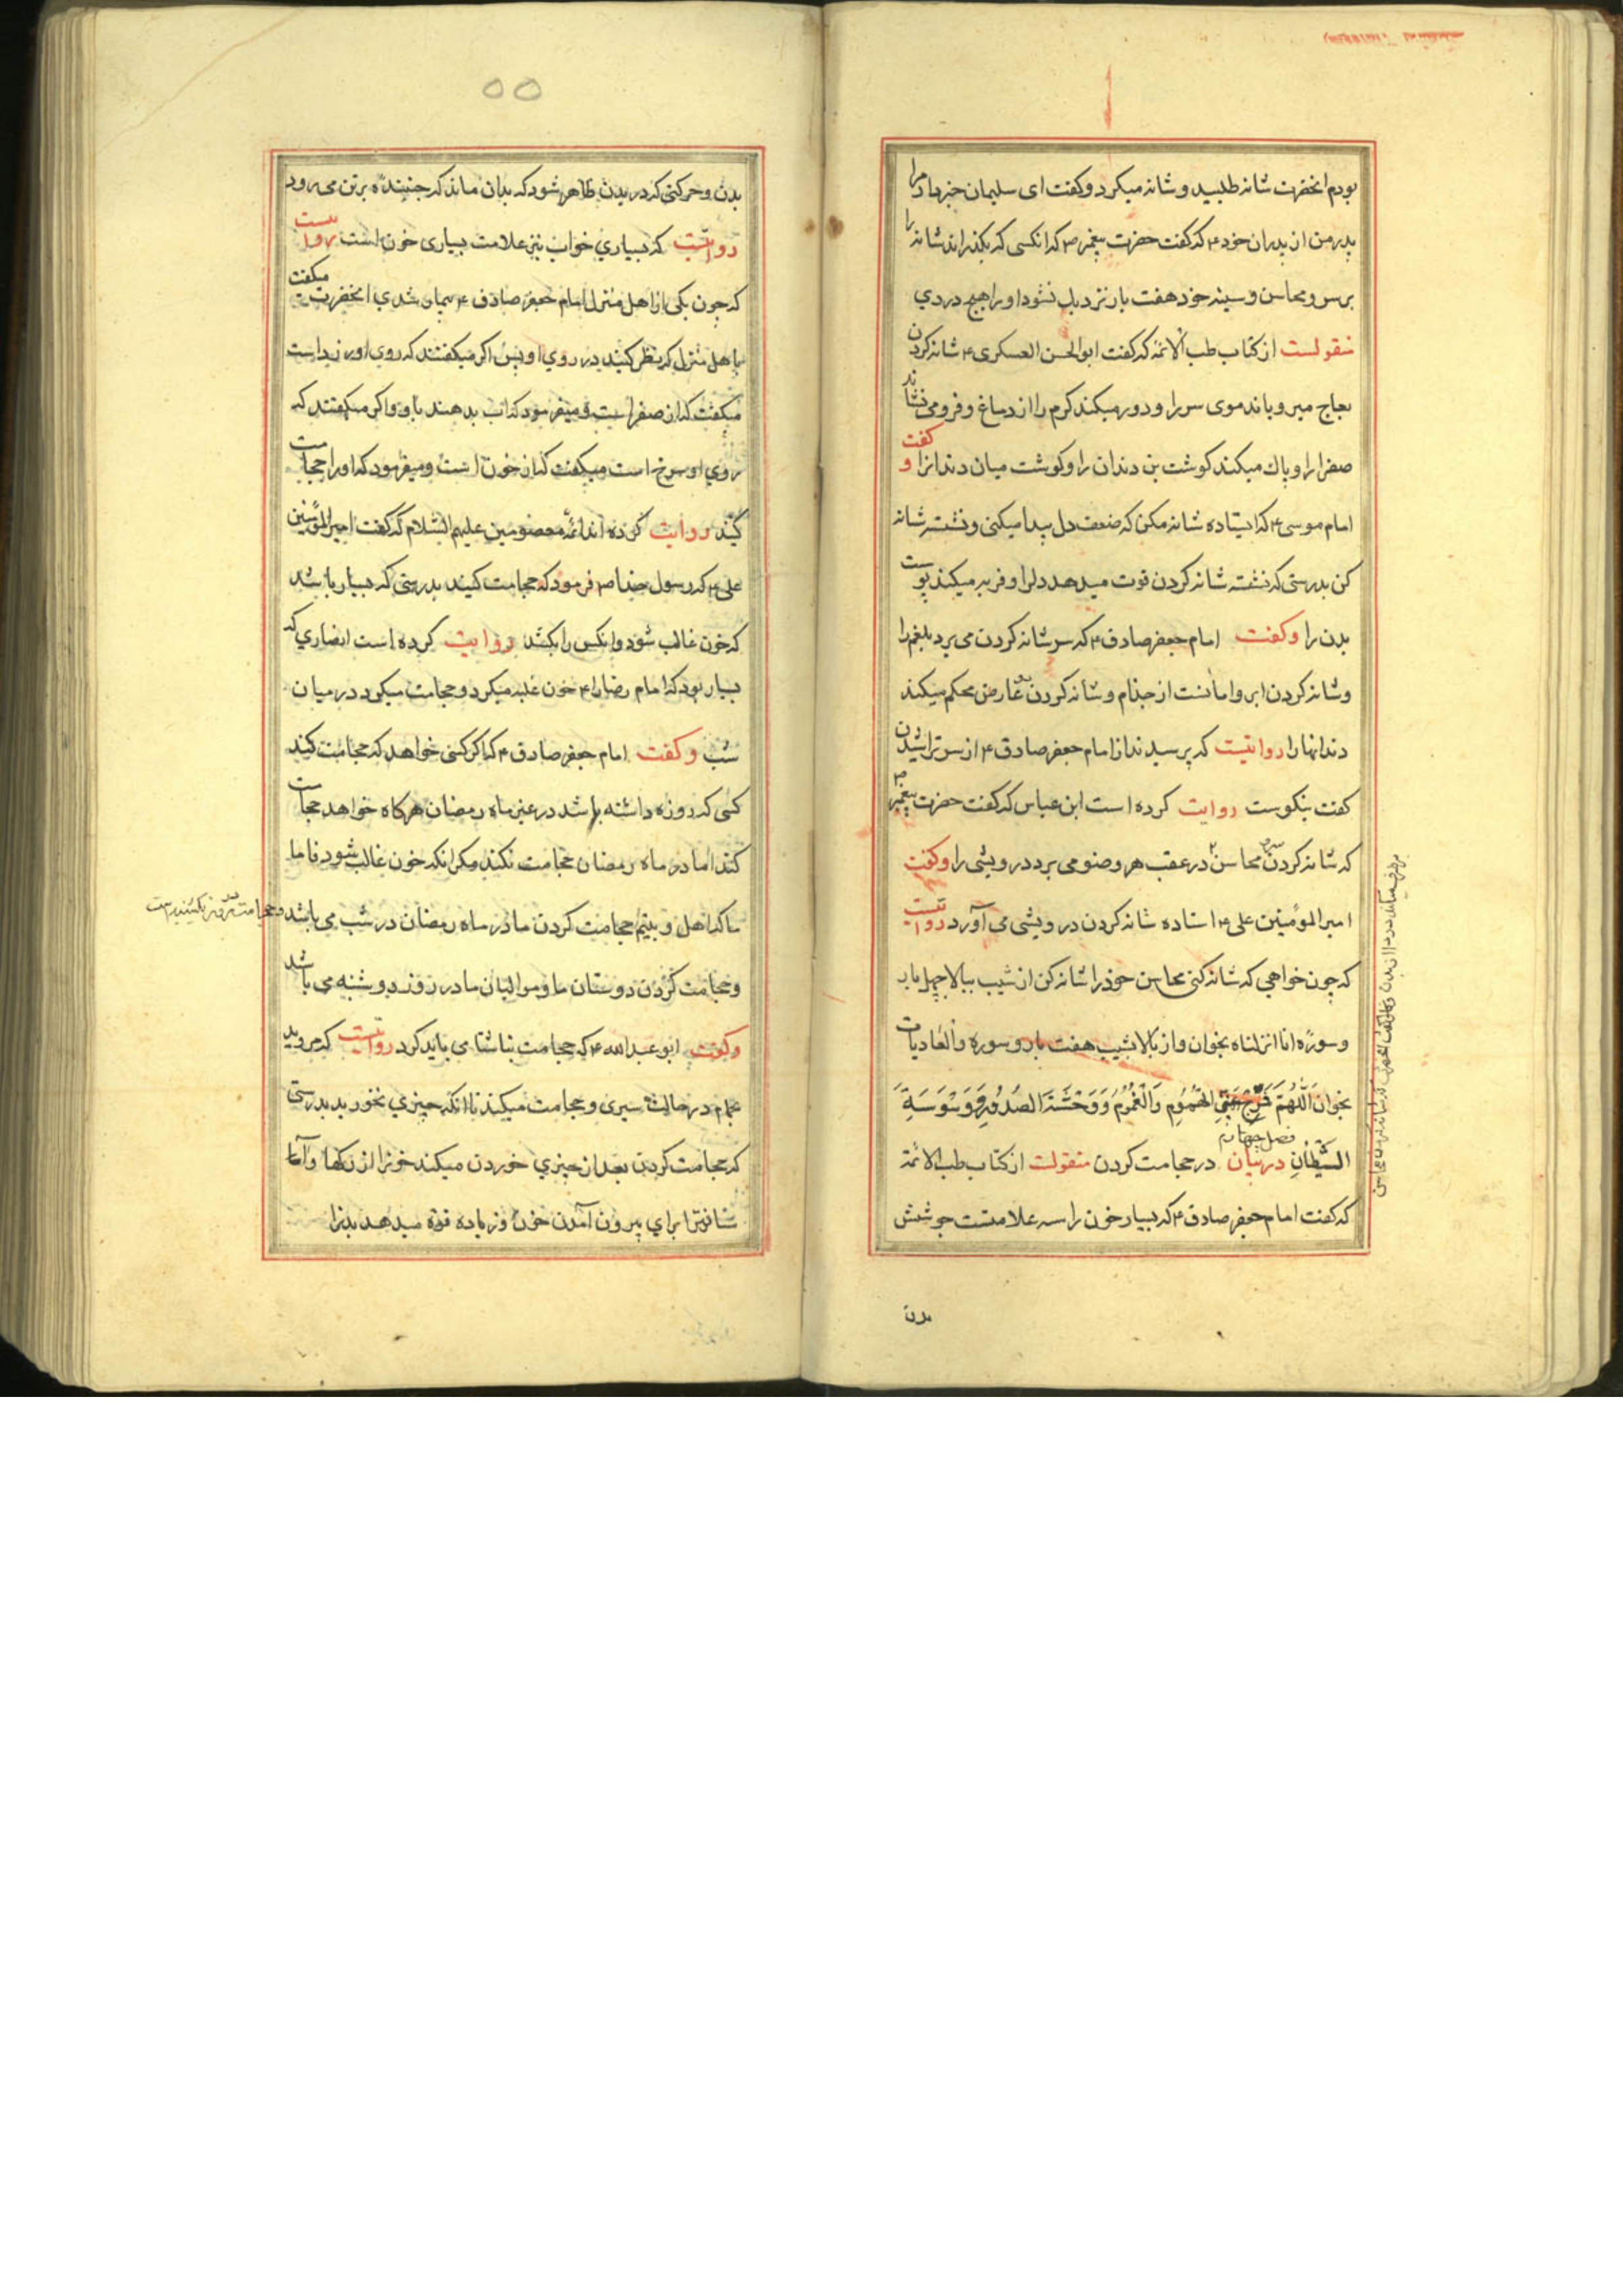 بودم انحضرت شانه طلبید و شانه میکرد و کفت ای سلیمان خبرداد مرا
پدر من از پدران خود ۴ که کفت حضرت پیغمبر ص که انکسی که بکذراند شانه را
بر سر و محاسن و سینه خود هفت بار نزدیك نشود او را هیچ دردي
منقولست از کتاب طب الائمه که کفت ابوالحسن العسکری ۴ شانه کردن
بعاج میرویاند موی سر را و دور میکند کرم را از دماغ و فرو می نشاند
صفرا را و پاك میکند کوشت بن دندان را و کوشت میان دندانرا و کفت
امام موسی ۴ که ایستاده شانه مکن که ضعف دل پیدا میکنی و نشسته شانه
کن بدرستی که نشسته شانه کردن قوت میدهد دلرا و فربه میکند پوست
بدن را و کفت امام جعفر صادق ۴ که سر شانه کردن می برد بلغم را
و شانه کردن ابرو امانست از جذام و شانه کردن عارض محکم میکند
دندانها را روایتست که پرسیدند از امام جعفر صادق ۴ از سر تراشیدن
کفت نیکوست روایت کرده است ابن عباس که کفت حضرت پیغمبر ص
که شانه کردن محاسن در عقب هر وضو می برد درویشی را و کفت
امیر المومنین علی ۴ استاده شانه کردن درویشی می آورد روایتست
که چون خواهی که شانه کنی محاسن خود را شانه کن از شیب ببالا چهل بار
و سوره انا انزلناه بخوان و از بالا بشیب هفت بار و سوره والعادیات
بخوان اَللّهُمَّ فَرِّجْ عَنِّي الهُمُومِ وَالْغُمُومُ وَوَحْشَةَ الصُدُورِ وَوَسْوَسَةِ
فصل چهارم
الشَّیطانِ در بیان در حجامت کردن منقولست از کتاب طب الائمة
که کفت امام جعفر صادق ۴ که بسیار خون را سه علامتست جوشش
بدن
بدن و حرکتی که در بدن ظاهر شود که بدان ماند که جنبنده بر تن می رود
روایتست که بسیاري خواب نیز علامت بسیاری خون است روایتست
که چون یکی از اهل منزل امام جعفر صادق ۴ بیمار شدی انحضرت میکفت
باهل منزل که نظر کنید در روي او پس اکر میکفتند که روی او زرد است
میکفت که از صفر است و میفرمود که اب بدهند باو و اکر میکفتند که
روي او سرخ است میکفت که از خون است و میفرمود که او را حجامت
کنید روایت کرده اند ائمه معصومین علیهم السّلام که کفت امیر المومنین
علی ۴ که رسول خدا ص فرمود که حجامت کنید بدرستی که بسیار باشد
که خون غالب شود و انکس را بکشد روایت کرده است انصاري که
بسیار بود که امام رضا را ۴ خون غلبه میکرد و حجامت میکرد در میان
شب و کفت امام جعفر صادق ۴ که اکر کسی خواهد که حجامت کند
کسی که روزه داشته باشد در غیر ماه رمضان هر کاه خواهد حجامت
کند اما در ماه رمضان حجامت نکند مکر انکه خون غالب شود
حجامت کردن ما در ماه رمضان در شب می باشد
و حجامت کردن دوستان ما و موالیان ما در روز دوشنبه می باشد
و کفت ابو عبدالله ۴ که حجامت بناشتا می باید کرد روایتست که مروید
بحمام در حالت سیری و حجامت میکنید تا انکه چیزي نخورید بدرستی
که حجامت کردن بعد از چیزي خوردن میکند خونرا از رکها
برای بیرون آمدن خون و زیاده قوة میدهد بدنرا